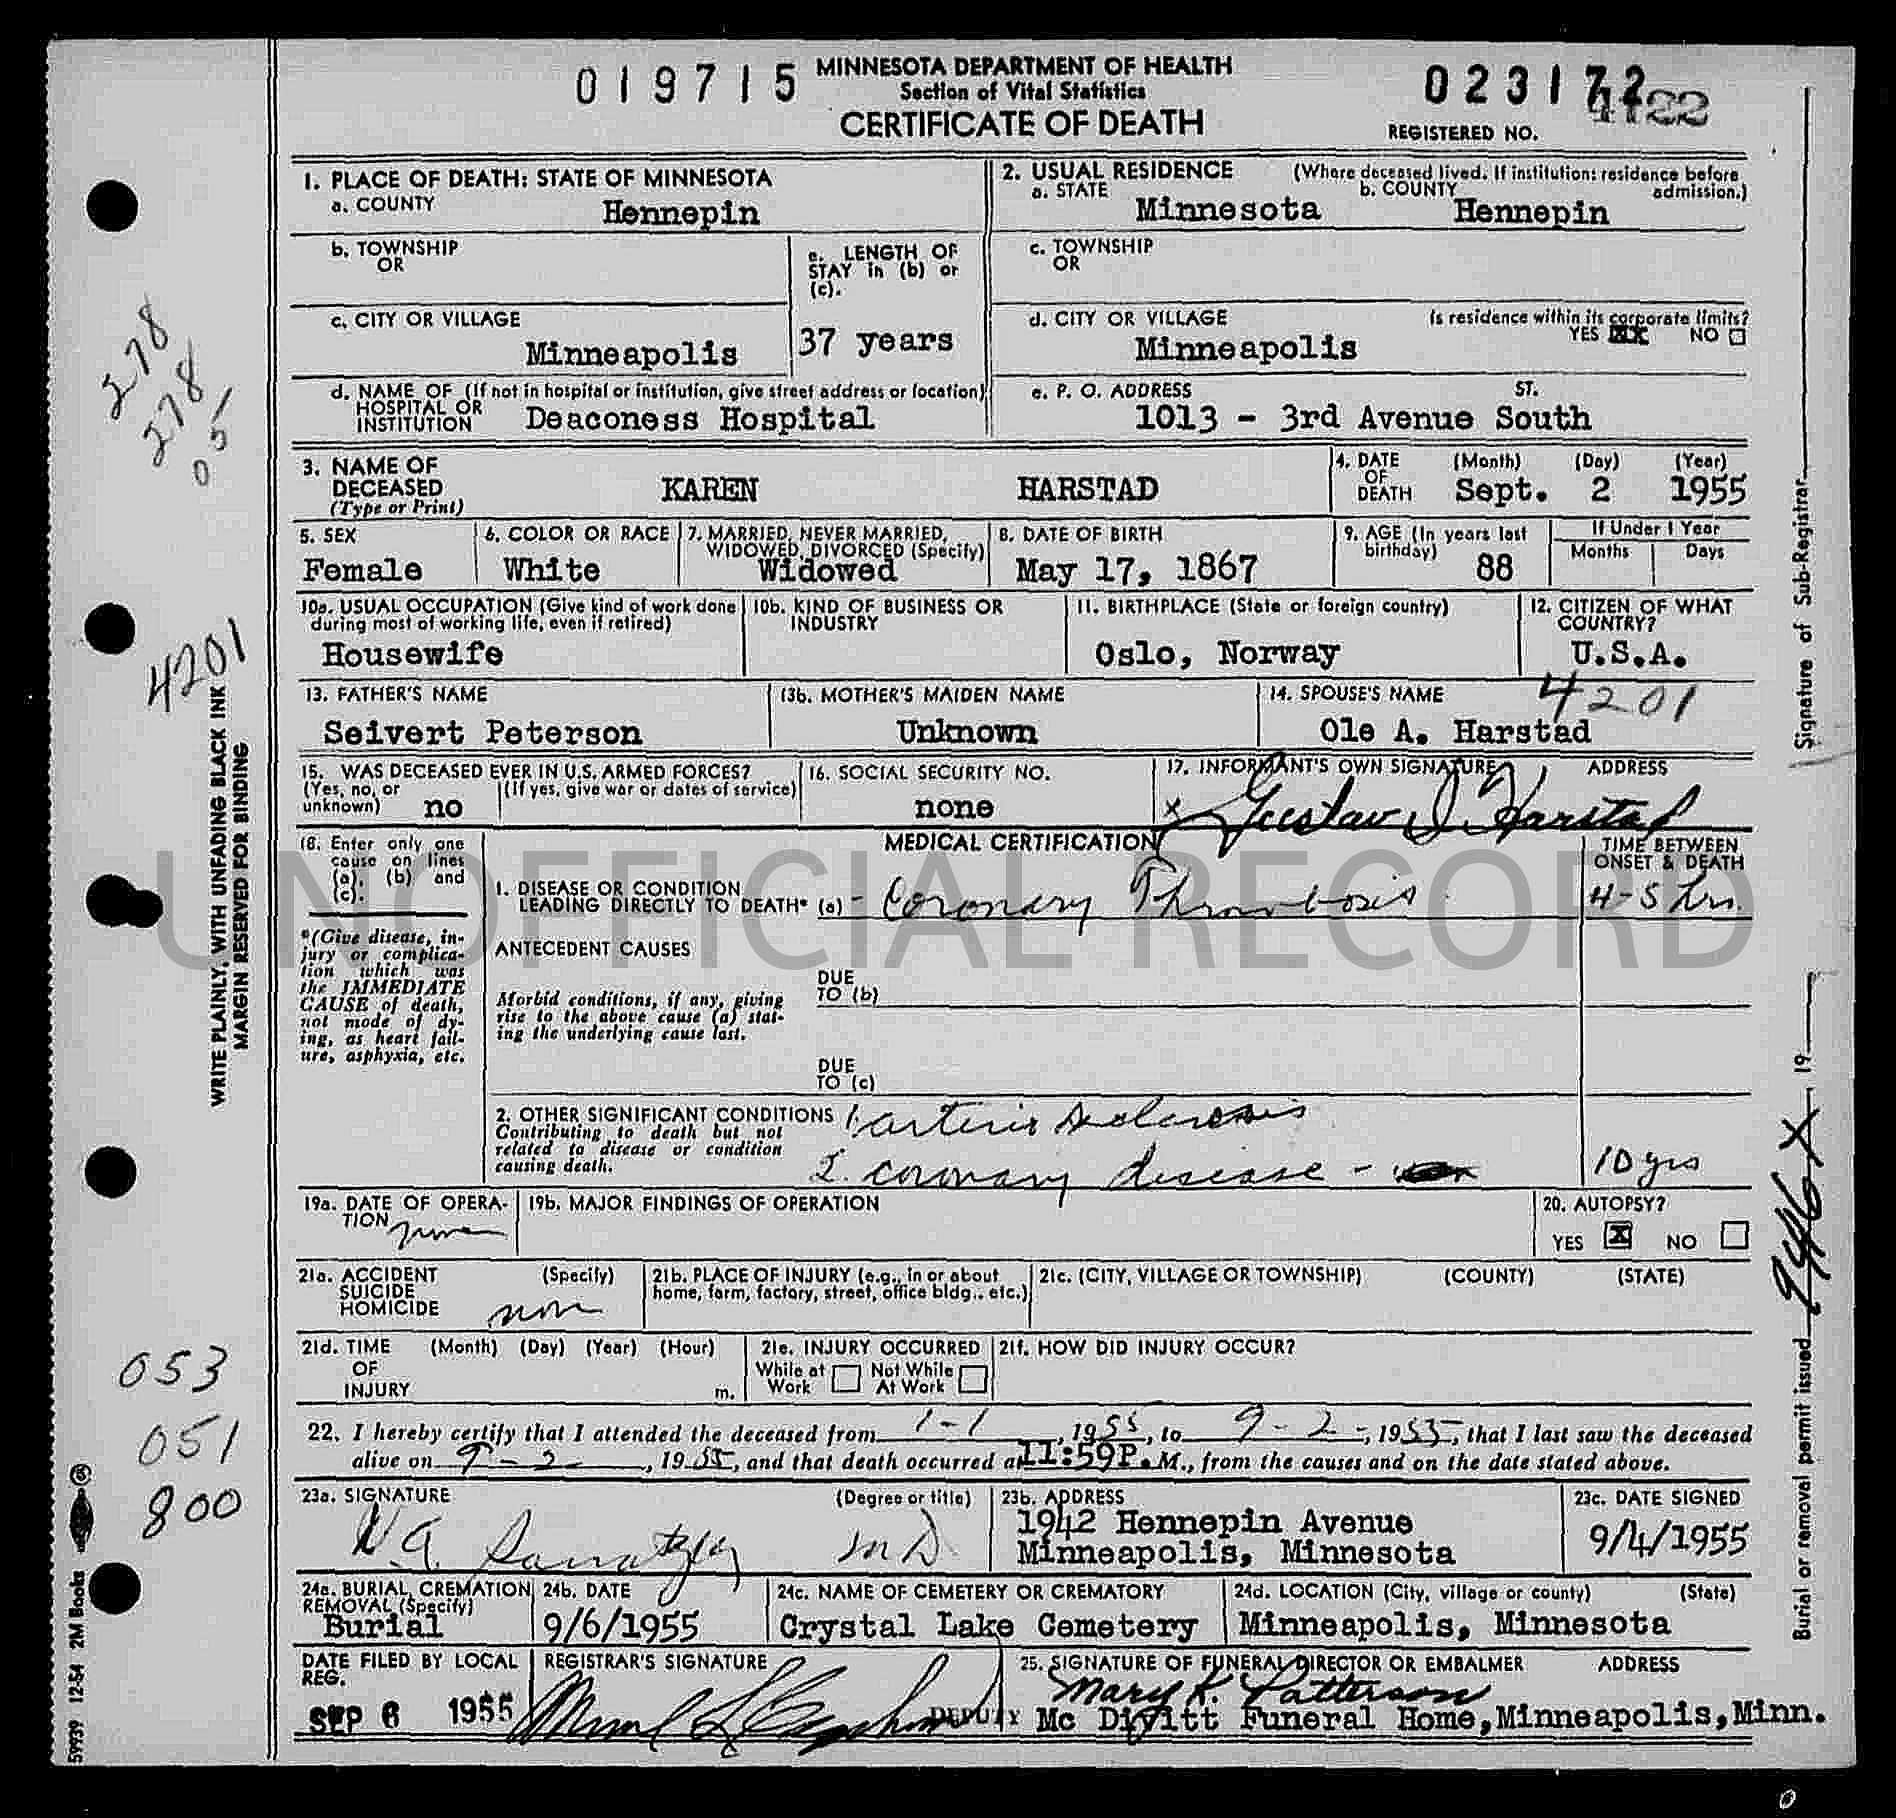 019715
MINNESOTA DEPARTMENT OF HEALTH
Section of Vital Statistics
CERTIFICATE OF DEATH
023172
4122
REGISTERED NO.
1. PLACE OF DEATH: STATE OF MINNESOTA
a. COUNTY
Hennepin
2. USUAL RESIDENCE (Where deceased lived. If institution: residence before admission.)
a. STATE
Minnesota
b. COUNTY
Hennepin
b. TOWNSHIP
OR
e. LENGTH OF
STAY in (b) or
(c).
37 years
c. TOWNSHIP
OR
c. CITY OR VILLAGE
Minneapolis
d. CITY OR VILLAGE
Minneapolis
Is residence within its corporate limits?
YES XX NO
d. NAME OF (If not in hospital or institution, give street address or location)
HOSPITAL OR
INSTITUTION
Deaconess Hospital
e. P. O. ADDRESS ST.
1013 - 3rd Avenue South
3. NAME OF
DECEASED
(Type or Print)
KAREN HARSTAD
4. DATE
OF
DEATH
(Month) (Day) (Year)
Sept. 2 1955
5. SEX
Female
6. COLOR OR RACE
White
7. MARRIED, NEVER MARRIED,
WIDOWED, DIVORCED (Specify)
Widowed
8. DATE OF BIRTH
May 17, 1867
9. AGE (In years last
birthday)
88
If Under 1 Year
Months Days
10a. USUAL OCCUPATION (Give kind of work done
during most of working life, even if retired)
Housewife
10b. KIND OF BUSINESS OR
INDUSTRY
11. BIRTHPLACE (State or foreign country)
Oslo, Norway
12. CITIZEN OF WHAT
COUNTRY?
U.S.A.
13. FATHER'S NAME
Seivert Peterson
13b. MOTHER'S MAIDEN NAME
Unknown
14. SPOUSE'S NAME
4201
Ole A. Harstad
15. WAS DECEASED EVER IN U.S. ARMED FORCES?
(Yes, no, or
unknown)
no
(If yes, give war or dates of service)
16. SOCIAL SECURITY NO.
none
17. INFORMANT'S OWN SIGNATURE ADDRESS
x Gustav J Harstad
18. Enter only one
cause on lines
(a), (b) and
(c).
MEDICAL CERTIFICATION
TIME BETWEEN
ONSET & DEATH
1. DISEASE OR CONDITION
LEADING DIRECTLY TO DEATH* (a) - Coronary Thrombosis.
4-5 hrs.
UNOFFICIAL RECORD
*(Give disease, in-
jury or complica-
tion which was
the IMMEDIATE
CAUSE of death,
not mode of dy-
ing, as heart fail-
ure, asphyxia, etc.
ANTECEDENT CAUSES
Morbid conditions, if any, giving
rise to the above cause (a) stat-
ing the underlying cause last.
DUE
TO (b)
DUE
TO (c)
2. OTHER SIGNIFICANT CONDITIONS
Contributing to death but not
related to disease or condition
causing death.
1. arterio sclerosis
2. coronary disease -
10 yrs
19a. DATE OF OPERA-
TION
none
19b. MAJOR FINDINGS OF OPERATION
20. AUTOPSY?
YES X NO
21a. ACCIDENT (Specify)
SUICIDE
HOMICIDE
non
21b. PLACE OF INJURY (e.g., in or about
home, farm, factory, street, office bldg., etc.)
21c. (CITY, VILLAGE OR TOWNSHIP) (COUNTY) (STATE)
21d. TIME (Month) (Day) (Year) (Hour)
OF
INJURY m.
21e. INJURY OCCURRED
While at Not While
Work At Work
21f. HOW DID INJURY OCCUR?
22. I hereby certify that I attended the deceased from 1-1, 1955, to 9-2-, 1955, that I last saw the deceased
alive on 9-2-, 1955, and that death occurred at 11:59P.M., from the causes and on the date stated above.
23a. SIGNATURE (Degree or title)
MD
23b. ADDRESS
1942 Hennepin Avenue
Minneapolis, Minnesota
23c. DATE SIGNED
9/4/1955
24a. BURIAL, CREMATION
REMOVAL (Specify)
Burial
24b. DATE
9/6/1955
24c. NAME OF CEMETERY OR CREMATORY
Crystal Lake Cemetery
24d. LOCATION (City, village or county) (State)
Minneapolis, Minnesota
DATE FILED BY LOCAL
REG.
SEP 6 1955
REGISTRAR'S SIGNATURE
DEPUTY
25. SIGNATURE OF FUNERAL DIRECTOR OR EMBALMER ADDRESS
Mary K. Patterson
Mc Divitt Funeral Home, Minneapolis, Minn.
278
278
05
4201
WRITE PLAINLY, WITH UNFADING BLACK INK
MARGIN RESERVED FOR BINDING
053
051
800
59939 12-54 2M Books
Signature of Sub-Registrar
Burial or removal permit issued 19
0